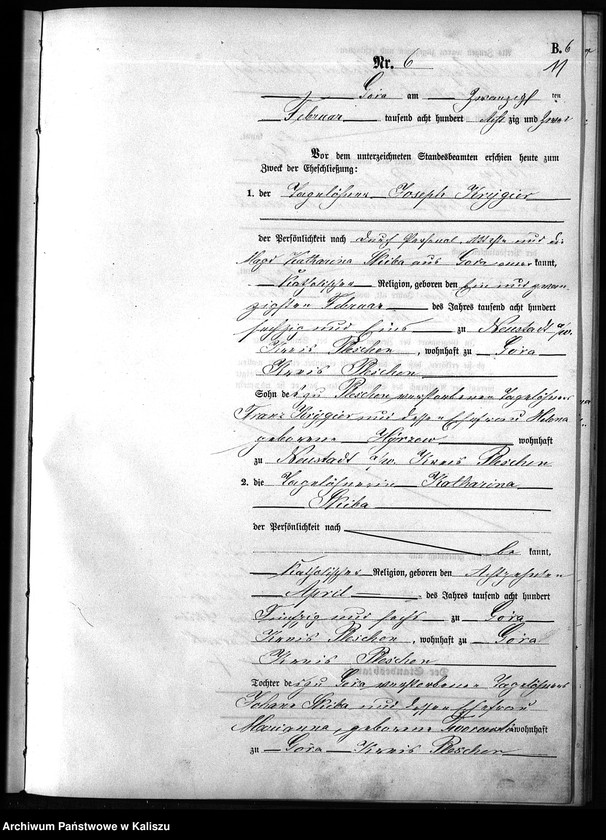 B. 6
11
Nr. 6
Góra am Zwanzigsten
Februar tausend acht hundert Achtzig und Zwei
Vor dem unterzeichneten Standesbeamten erschien heute zum
Zweck der Eheschließung:
1. der Tagelöhner Joseph Krygier
der Persönlichkeit nach durch Personal Atteste und die
Magd Katharina Skiba aus Góra anerkannt,
Katholischer Religion, geboren den Ein und zwan
zigsten Februar des Jahres tausend acht hundert
sechzig und Eins zu Neustadt a/W.
Kreis Pleschen, wohnhaft zu Góra
Kreis Pleschen
Sohn des zu Pleschen verstorbenen Tagelöhners
Franz Krygier und dessen Ehefrau Helena
geborene wohnhaft
zu Neustadt a/W. Kreis Pleschen
2. die Tagelöhnerin Katharina
Skiba
der Persönlichkeit nach
bekannt,
Katholischer Religion, geboren den Achtzehnten
April des Jahres tausend acht hundert
Fünfzig und sechs zu Góra
Kreis Pleschen, wohnhaft zu Góra
Kreis Pleschen
Tochter des zu Góra verstorbenen Tagelöhners
Johann Skiba und dessen Ehefrau
Marianna, geborene wohnhaft
zu Góra Kreis Pleschen
Archiwum Państwowe w Kaliszu